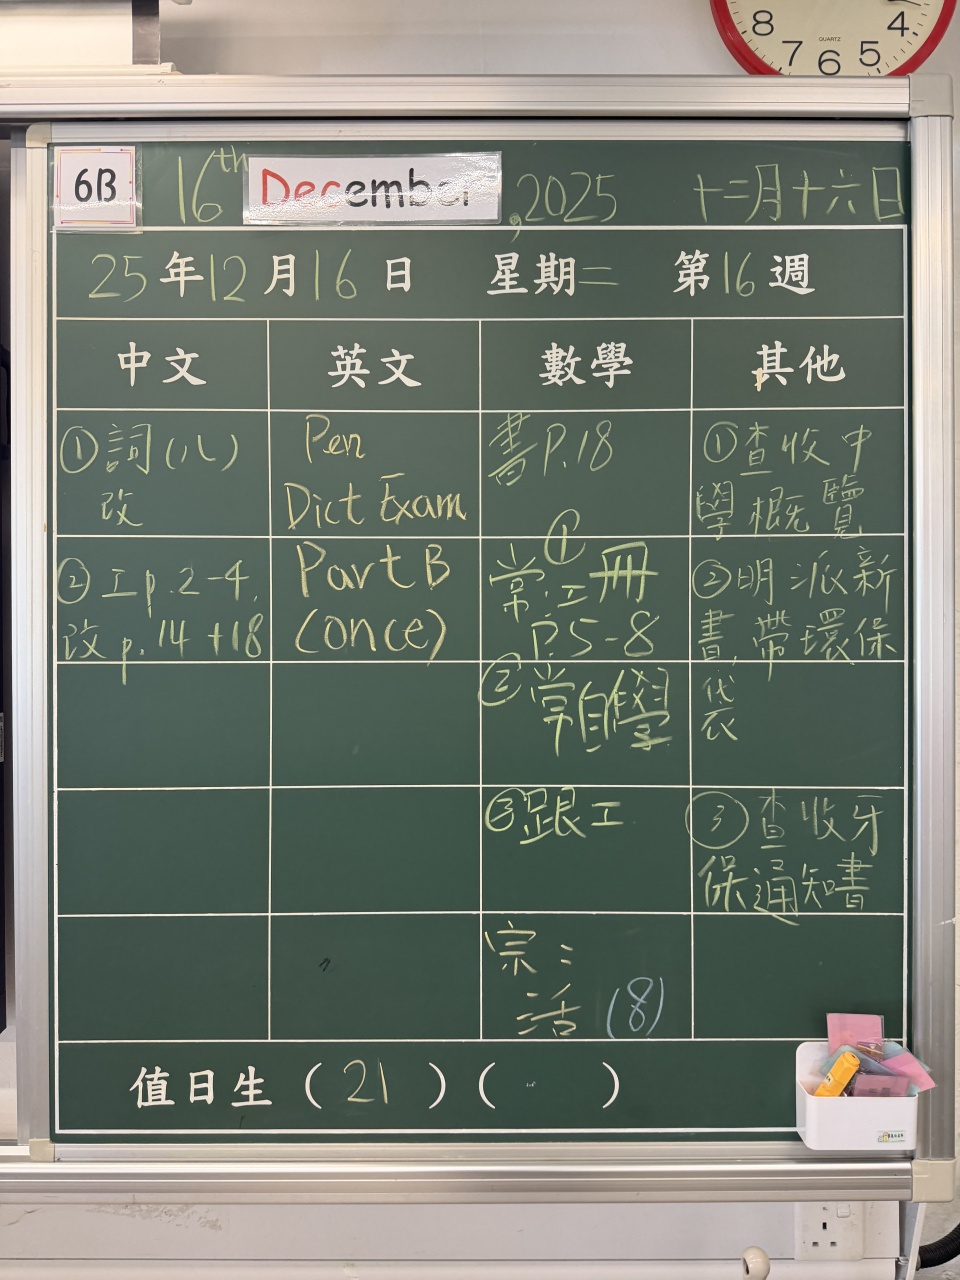 8 7 6 5 4
QUARTZ
6B 16th December, 2025 十二月十六日
25年12月16日 星期二 第16週
中文 英文 數學 其他
①詞(八)
改
②工p.2-4,
改p.14+18
Pen
Dict Exam
Part B
(once)
書P.18
①
常:工冊
P.5-8
②常自學
③跟工
宗:
活 (8)
①查收中
學概覽
②明派新
書,帶環保
袋
③查收牙
保通知書
值日生(21)( )